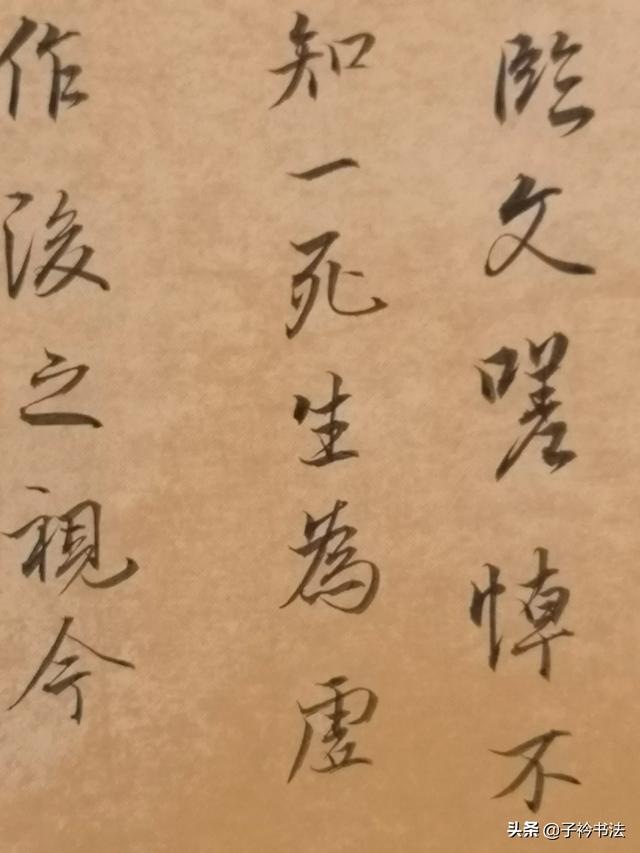 臨文嗟悼不
知一死生為虛
作後之視今
头条 @子衿书法